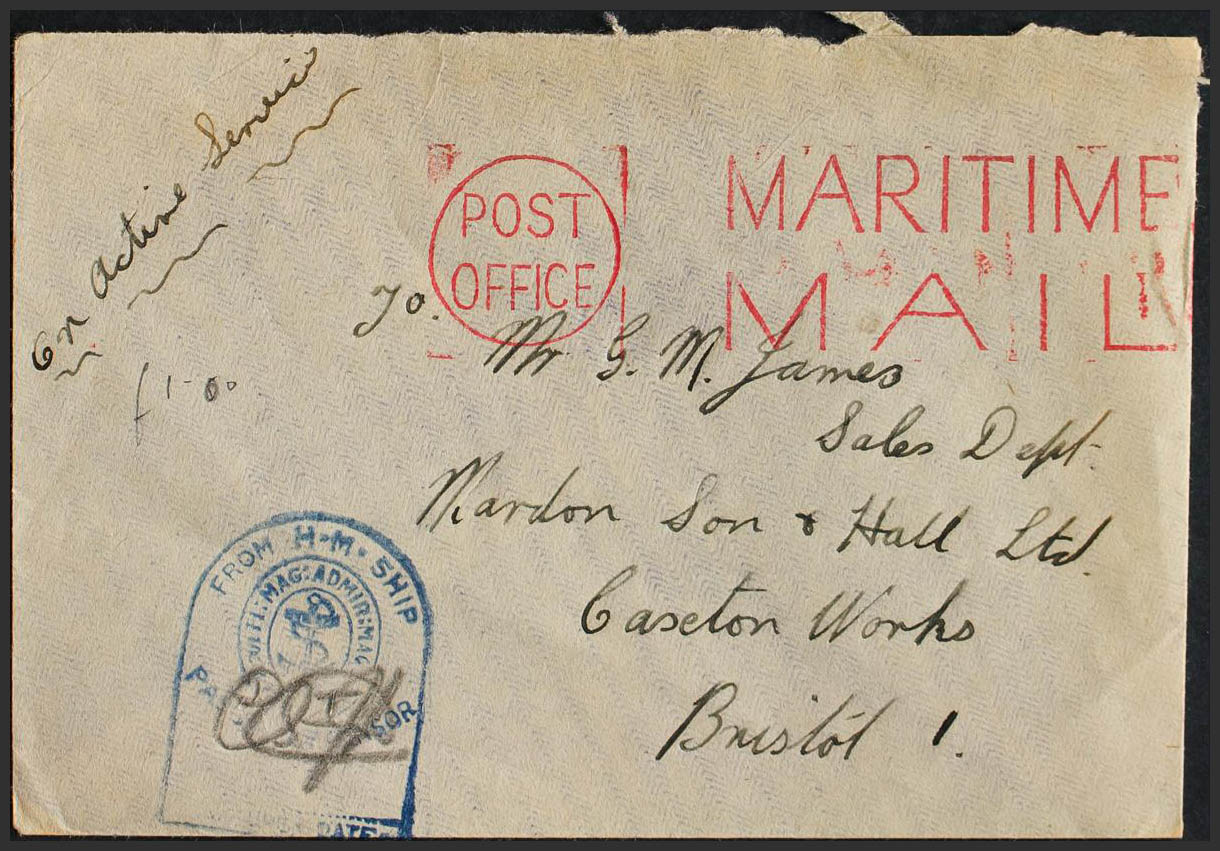 On Active Service
POST OFFICE
MARITIME MAIL
To.
Mr G. M. James
Sales Dept.
Mardon Son & Hall Ltd.
Caxton Works
Bristol 1.
£1-00
FROM H·M·SHIP
MAG:ADMIR:MAG
DATE